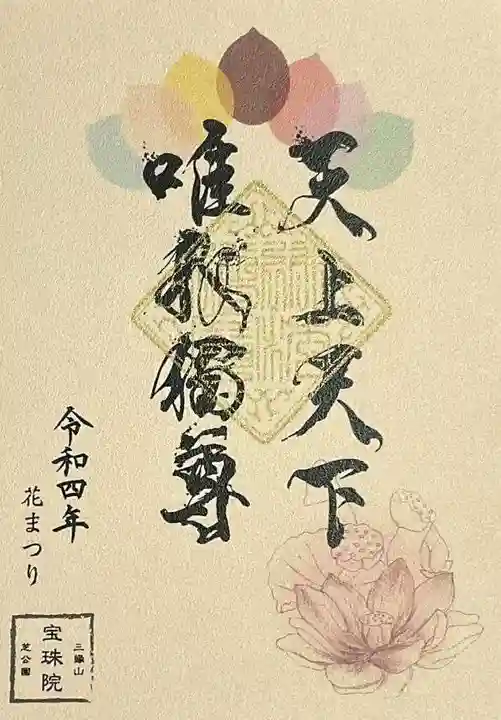 天上天下
唯我獨尊
令和四年
花まつり
三緣山
宝珠院
芝公園